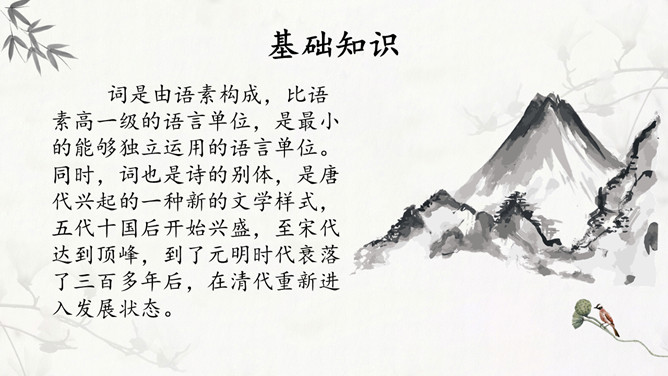 基础知识
词是由语素构成，比语
素高一级的语言单位，是最小
的能够独立运用的语言单位。
同时，词也是诗的别体，是唐
代兴起的一种新的文学样式，
五代十国后开始兴盛，至宋代
达到顶峰，到了元明时代衰落
了三百多年后，在清代重新进
入发展状态。